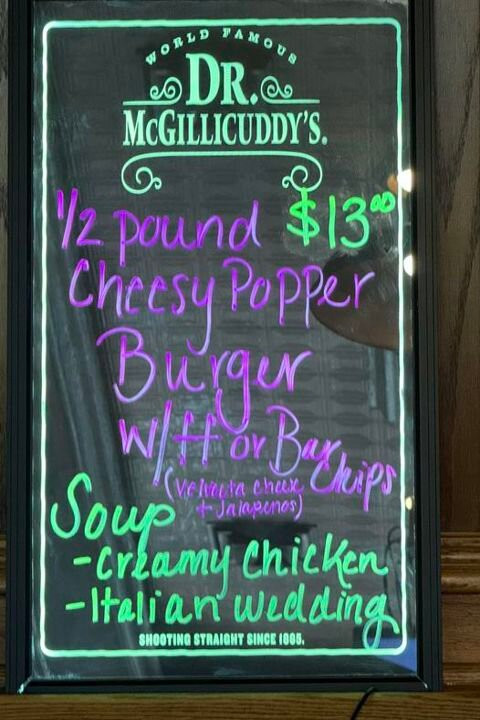 WORLD FAMOUS
DR.
McGILLICUDDY'S.
1/2 pound $13.00
Cheesy Popper
Burger
w/ff or Bar Chips
(Velveeta cheex
+ Jalapenos)
Soup
-Creamy Chicken
-Italian wedding
SHOOTING STRAIGHT SINCE 1865.